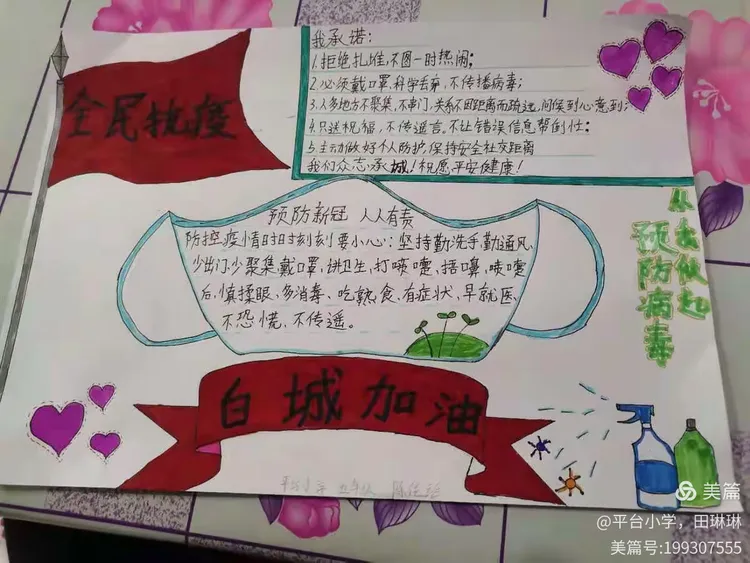 全民抗疫
我承诺:
1.拒绝扎堆,不图一时热闹;
2.必须戴口罩,科学丢弃,不传播病毒;
3.人多地方不聚集,不串门,关系不因距离而疏远,问候到心意到;
4.只送祝福,不传谣言,不让错误信息帮倒忙;
5.主动做好个人防护,保持安全社交距离
我们众志承城!祝愿平安健康!
预防新冠 人人有责
防控疫情时时刻刻要小心:坚持勤洗手,勤通风,
少出门,少聚集,戴口罩,讲卫生,打喷嚏,捂口鼻,喷嚏
后,慎揉眼,多消毒、吃熟食,有症状,早就医,
不恐慌,不传遥。
从我做起
预防病毒
白城加油
平台小学
美篇
@平台小学,田琳琳
美篇号:199307555